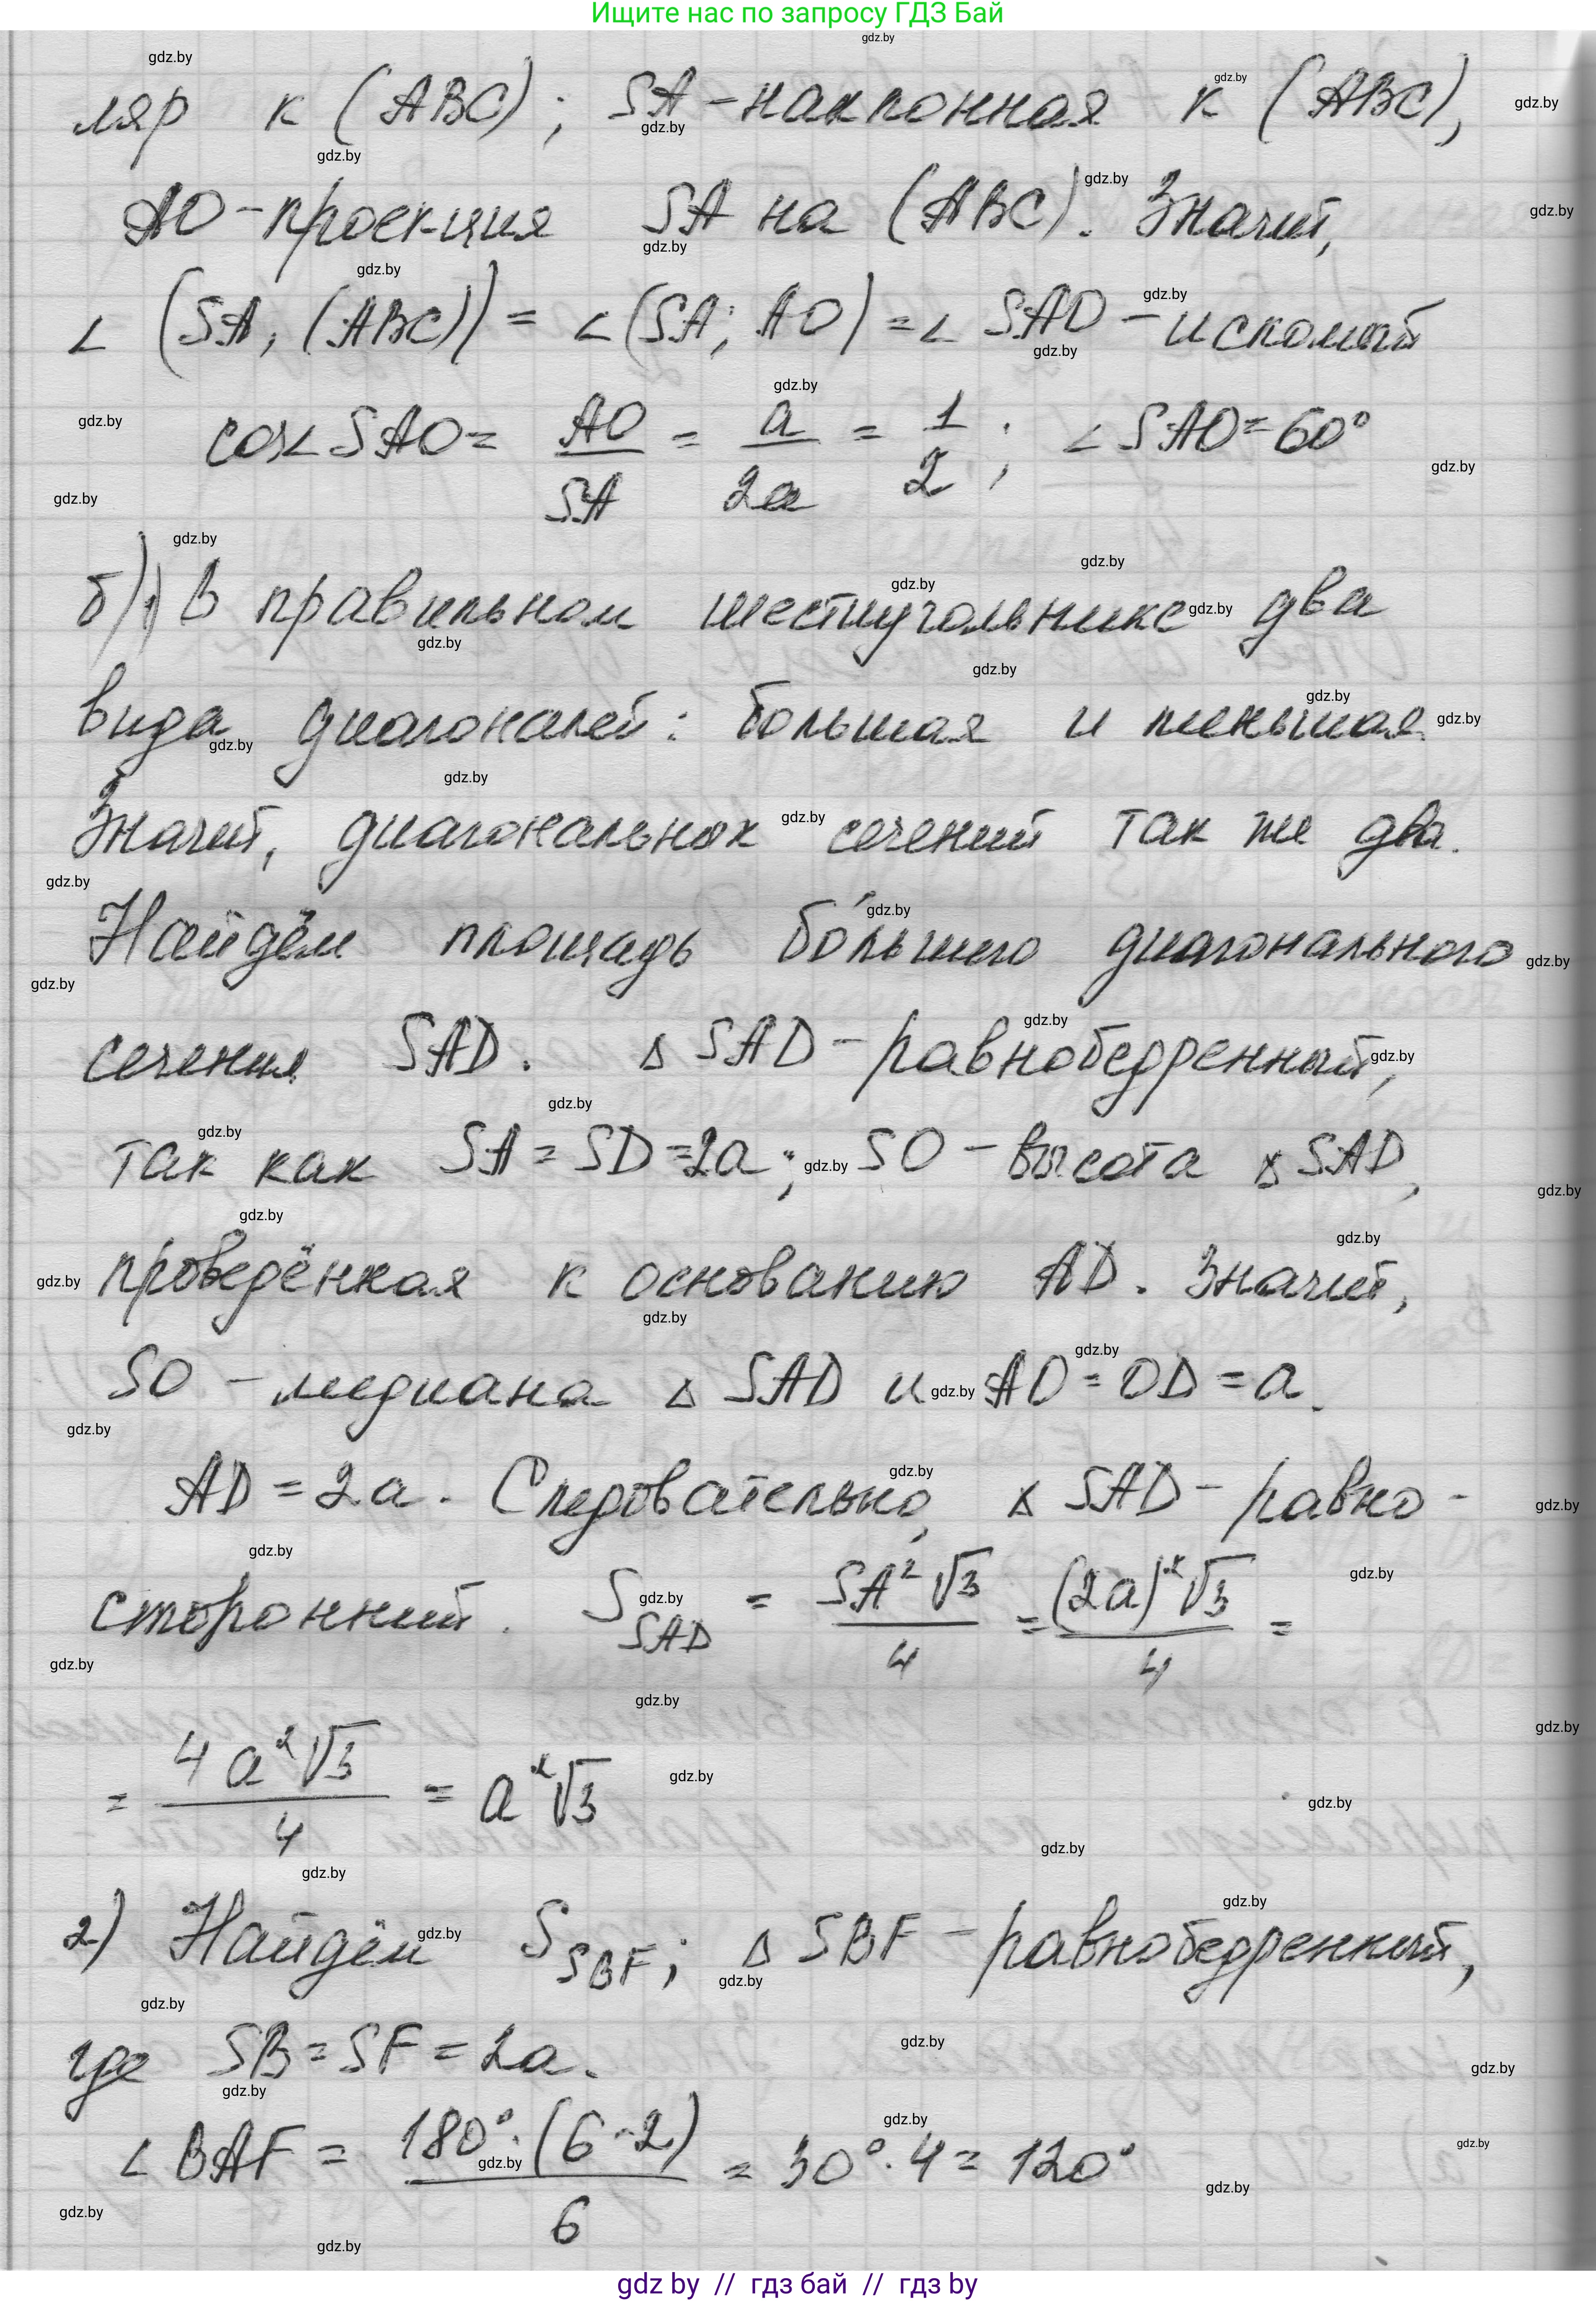 Ищите нас по запросу ГДЗ Бай
ляр к (ABC); SA - наклонная к (ABC),
AO - проекция SA на (ABC). Значит,
∠ (SA; (ABC)) = ∠(SA; AO) = ∠ SAO - искомый
cos∠SAO = AO/SA = a/2a = 1/2; ∠SAO = 60°
б) 1) В правильном шестиугольнике два
вида диагоналей: большая и меньшая.
Значит, диагональных сечений так же два.
Найдём площадь бо́льшего диагонального
сечения SAD. △ SAD - равнобедренный,
так как SA = SD = 2a; SO - высота △ SAD,
проведённая к основанию AD. Значит,
SO - медиана △ SAD и AO = OD = a.
AD = 2a. Следовательно, △ SAD - равно-
сторонний. S_SAD = SA²√3/4 = (2a)²√3/4 =
= 4a²√3/4 = a²√3
2) Найдём S_SBF; △ SBF - равнобедренный,
где SB = SF = 2a.
∠ BAF = 180°·(6-2)/6 = 30°·4 = 120°
gdz by // гдз бай // гдз by